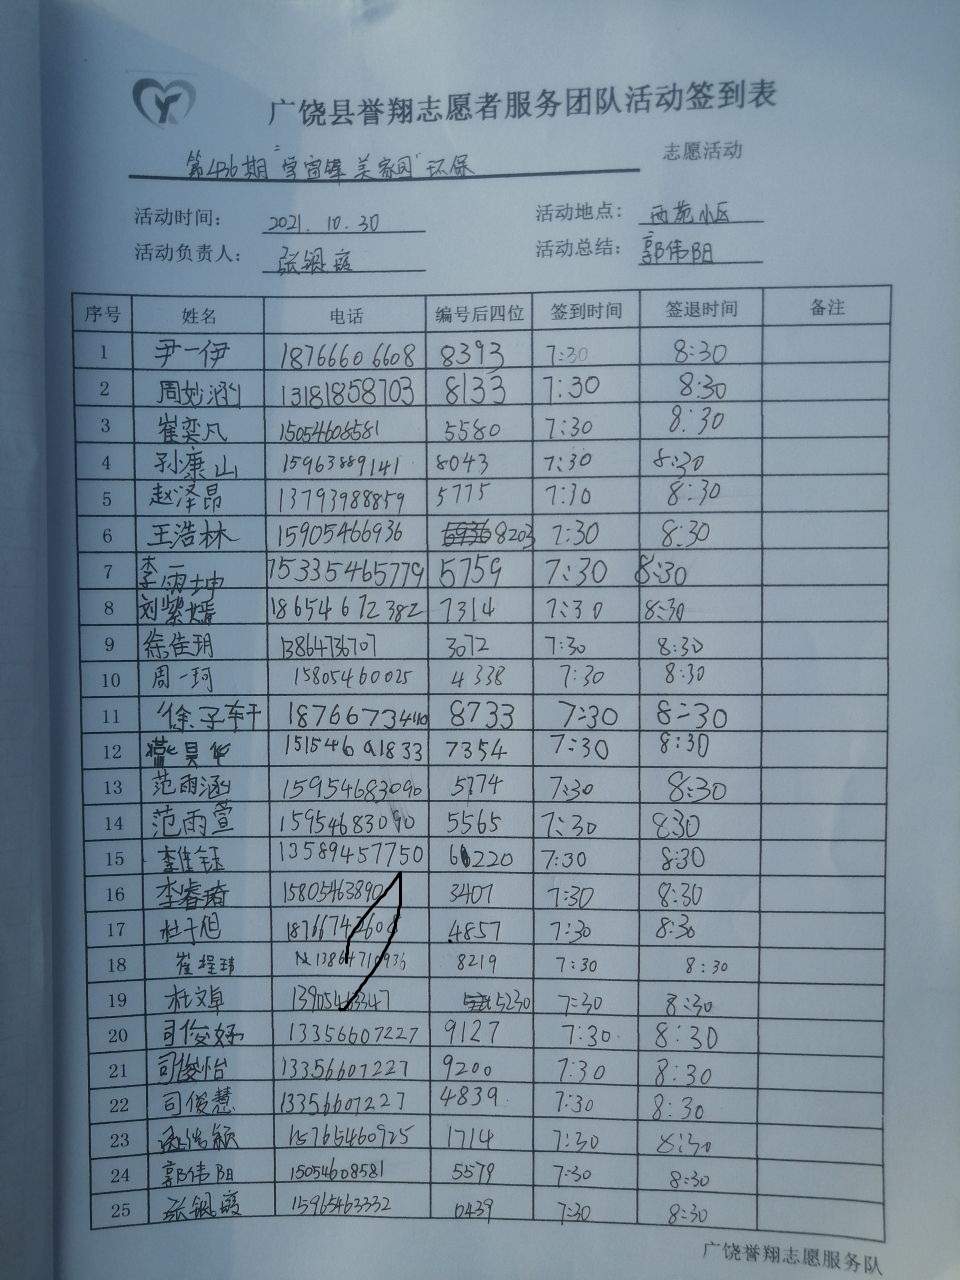 广饶县誉翔志愿者服务团队活动签到表
第436期"学雷锋 美家园"环保 志愿活动
活动时间: 2021.10.30 活动地点: 西苑小区
活动负责人: 张银霞 活动总结: 郭伟阳
序号 姓名 电话 编号后四位 签到时间 签退时间 备注
1 尹一伊 18766606608 8393 7:30 8:30
2 周妙涵 13181858703 8133 7:30 8:30
3 崔奕凡 15054608581 5580 7:30 8:30
4 孙康山 15963889141 8043 7:30 8:30
5 赵泽昂 13793988859 5775 7:30 8:30
6 王浩林 15905466936 8203 7:30 8:30
7 李雨坤 15335465779 5759 7:30 8:30
8 刘紫嫣 18654672382 7314 7:30 8:30
9 徐佳玥 13864736707 3072 7:30 8:30
10 周一珂 15805460025 4338 7:30 8:30
11 徐子轩 18766734410 8733 7:30 8:30
12 昊华 15154691833 7354 7:30 8:30
13 范雨涵 15954683090 5774 7:30 8:30
14 范雨萱 15954683090 5565 7:30 8:30
15 李佳钰 13589457750 6220 7:30 8:30
16 李睿琦 15805463890 3407 7:30 8:30
17 杜子旭 4857 7:30 8:30
18 崔程玮 13864710936 8219 7:30 8:30
19 杜文卓 13905463347 5230 7:30 8:30
20 司俊好 13356607227 9127 7:30 8:30
21 司俊怡 13356607227 9200 7:30 8:30
22 司俊慧 13356607227 4839 7:30 8:30
23 15765460925 1714 7:30 8:30
24 郭伟阳 15054608581 5579 7:30 8:30
25 张银霞 15965463332 0439 7:30 8:30
广饶誉翔志愿服务队